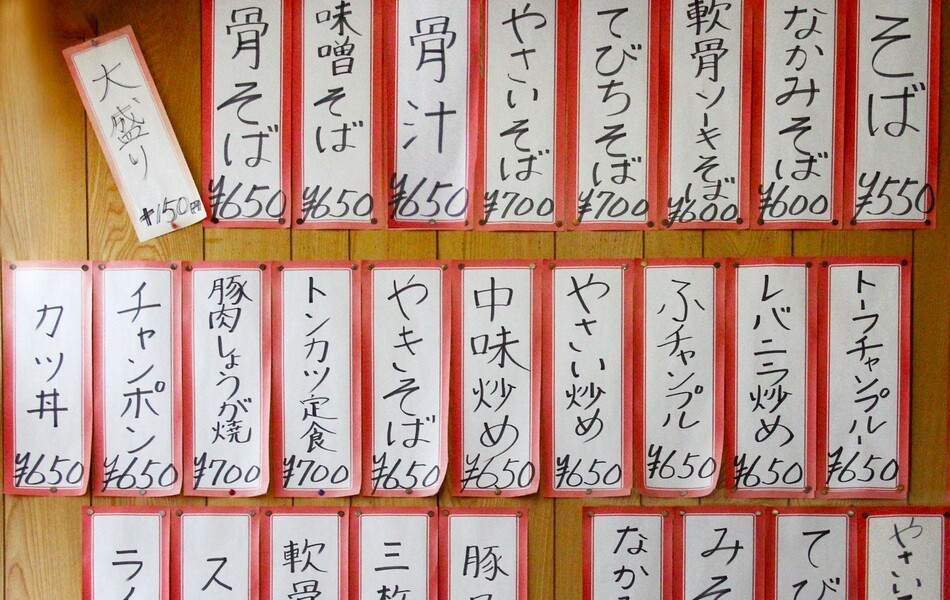 そば
¥550
なかみそば
¥600
軟骨ソーキそば
¥600
てびちそば
¥700
やさいそば
¥700
骨汁
¥650
味噌そば
¥650
骨そば
¥650
大盛り
¥150円
トーフチャンプルー
¥650
レバニラ炒め
¥650
ふチャンプル
¥650
やさい炒め
¥650
中味炒め
¥650
やきそば
¥650
トンカツ定食
¥700
豚肉しょうが焼
¥700
チャンポン
¥650
カツ丼
¥650
やさい
てび
みそ
なか
豚
三枚
軟骨
ス
ラ